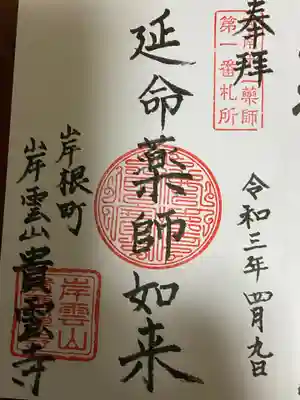 奉拝
薬師
第一番札所
令和三年四月九日
延命薬師如来
岸根町
岸雲山貴雲寺
岸雲山